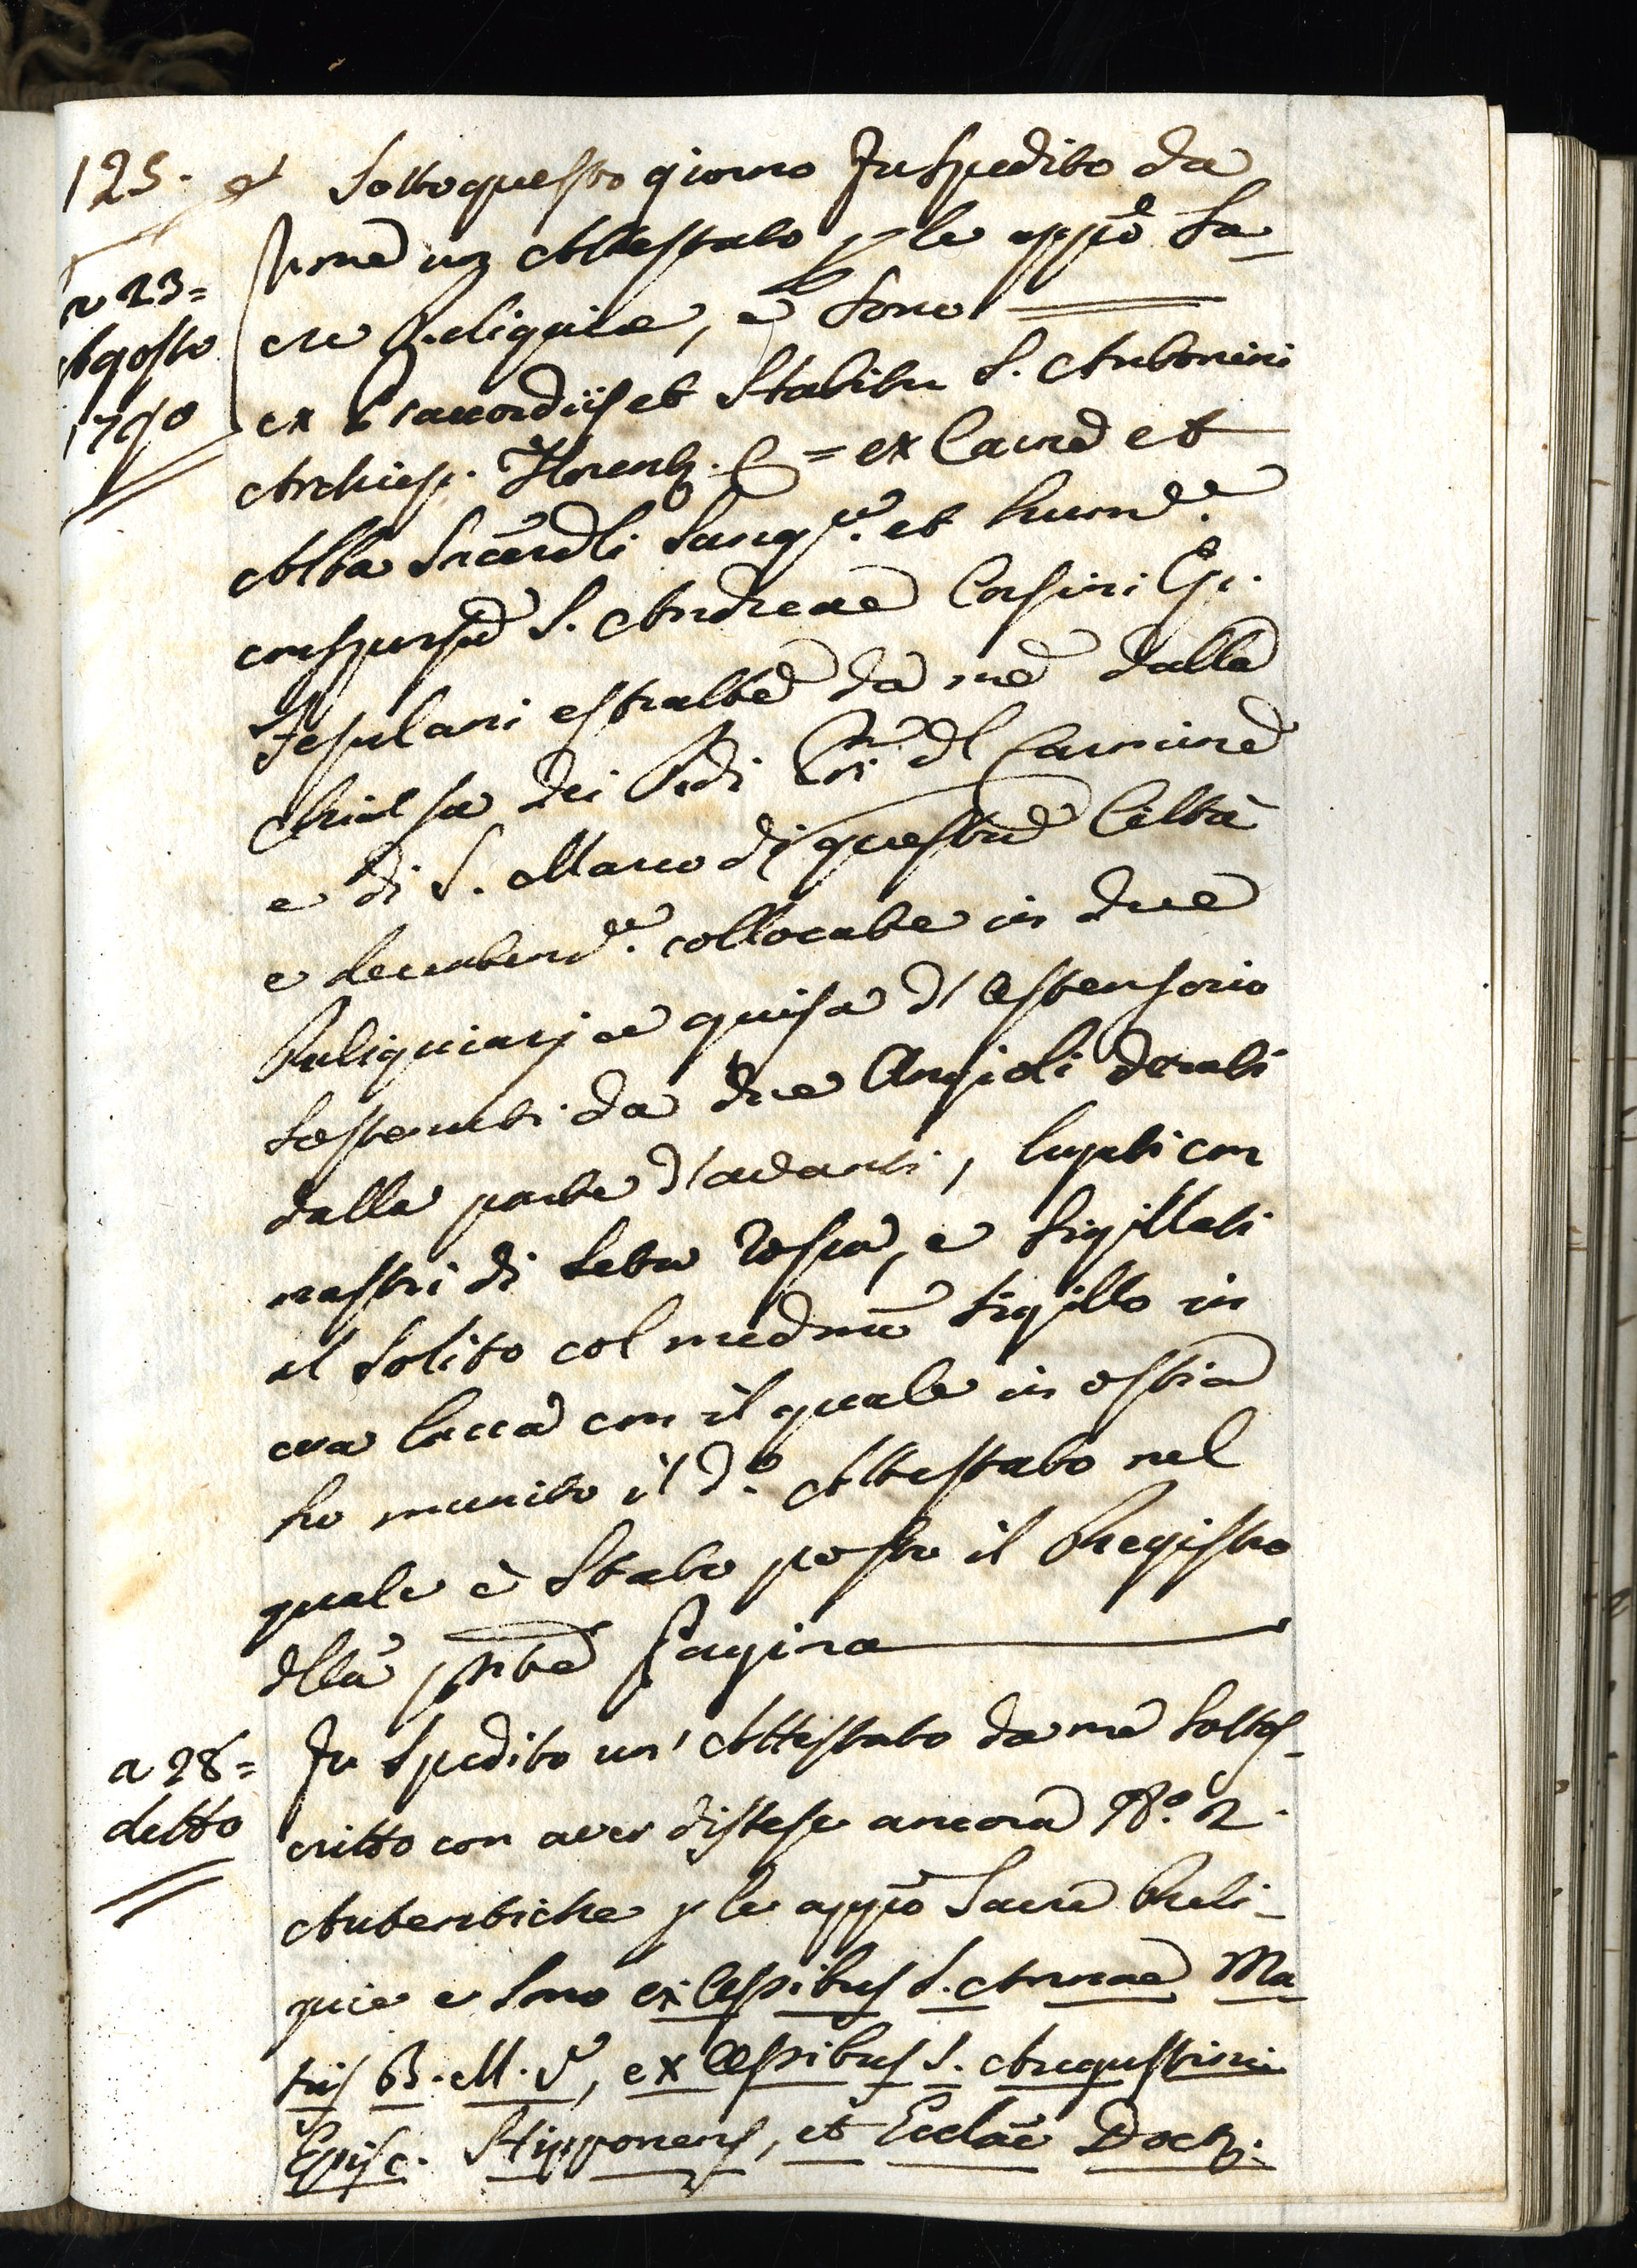 125. Sotto questo giorno fu spedito da
a 23= me un Attestato p le appõ Sa-
Agosto cre Reliquie, e sono
1790 ex Praecordiis et Stabitu S. Antonini
Archiep. Florent. C = ex Carne et
Alba Sanq.e et hum.e
conspersa S. Andreae Corsini Ep.
Fesulani estratte da me dalla
Chiesa dei Pdi del Carmine
e di S. Marco di questa Città
e decentem.e collocate in due
Reliquiarj a guisa d'Ostensorio
sostenuti da due Angioli dorati
dalla parte d'avanti, legati con
nastri di seta rossa, e sigillati
al solito col medmo sigillo in
cera lacca con il quale in ostia
ho munito il d.o Attestato nel
quale è stato posto il Registro
dlla pnte Pagina
a 28= Fu spedito un' Attestato da me sottos-
detto critto con aver distese ancora No. 2.
Autentiche p le appõ Sacre Reli-
quie e sono ex Ossibus S. Annae Ma
tris B. M. V, ex Ossibus S. Augustini
Episc. Hipponens, et Ecclae Doct.